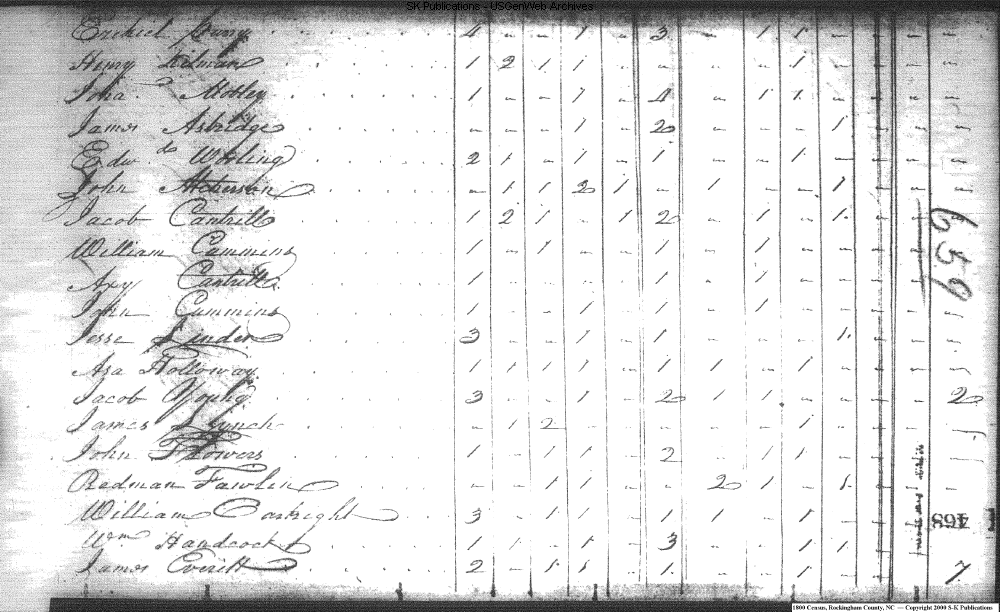 SK Publications - USGenWeb Archives
Ezekiel 4 - - 1 - 3 - - 1 1 - - -
Henry 1 2 1 1 - - - - 1 - - - -
John Mobley 1 - - 1 - 4 - 1 1 - - - -
James Asbridge - - - 1 - 2 - - - 1 - - -
Edwd. Worling 2 1 - 1 - 1 - - 1 - - - -
John Atcherson - 1 1 2 1 - 1 - - 1 - - -
Jacob Cantrill 1 2 1 - 1 2 - 1 - 1 - - -
William Cummins 1 - 1 - - 1 - 1 - - - - -
Axy Cantrill 1 - - 1 - 1 - 1 - - - - -
John Cummins 1 - - 1 - 1 - 1 - - - - -
Jesse Linder 3 - - 1 - 1 - - - 1 - - -
Asa Holloway 1 1 1 1 - 1 1 - 1 - - - -
Jacob Young 3 - - 1 - 2 1 1 - - - - 2
James Lynch - 1 2 - - - - - 1 - - - -
John Flowers 1 - 1 1 - 2 - 1 1 - - - -
Redman Fawlin - - 1 1 - - 2 1 - 1 - - -
William Cartright 3 - - 1 - 1 1 - 1 - - - -
Wm Handcock 1 1 - 1 - 3 - - 1 1 - - -
James Everett 2 - 1 1 - 1 - - 1 - - - 7
659
468
1800 Census, Rockingham County, NC — Copyright 2000 S-K Publications